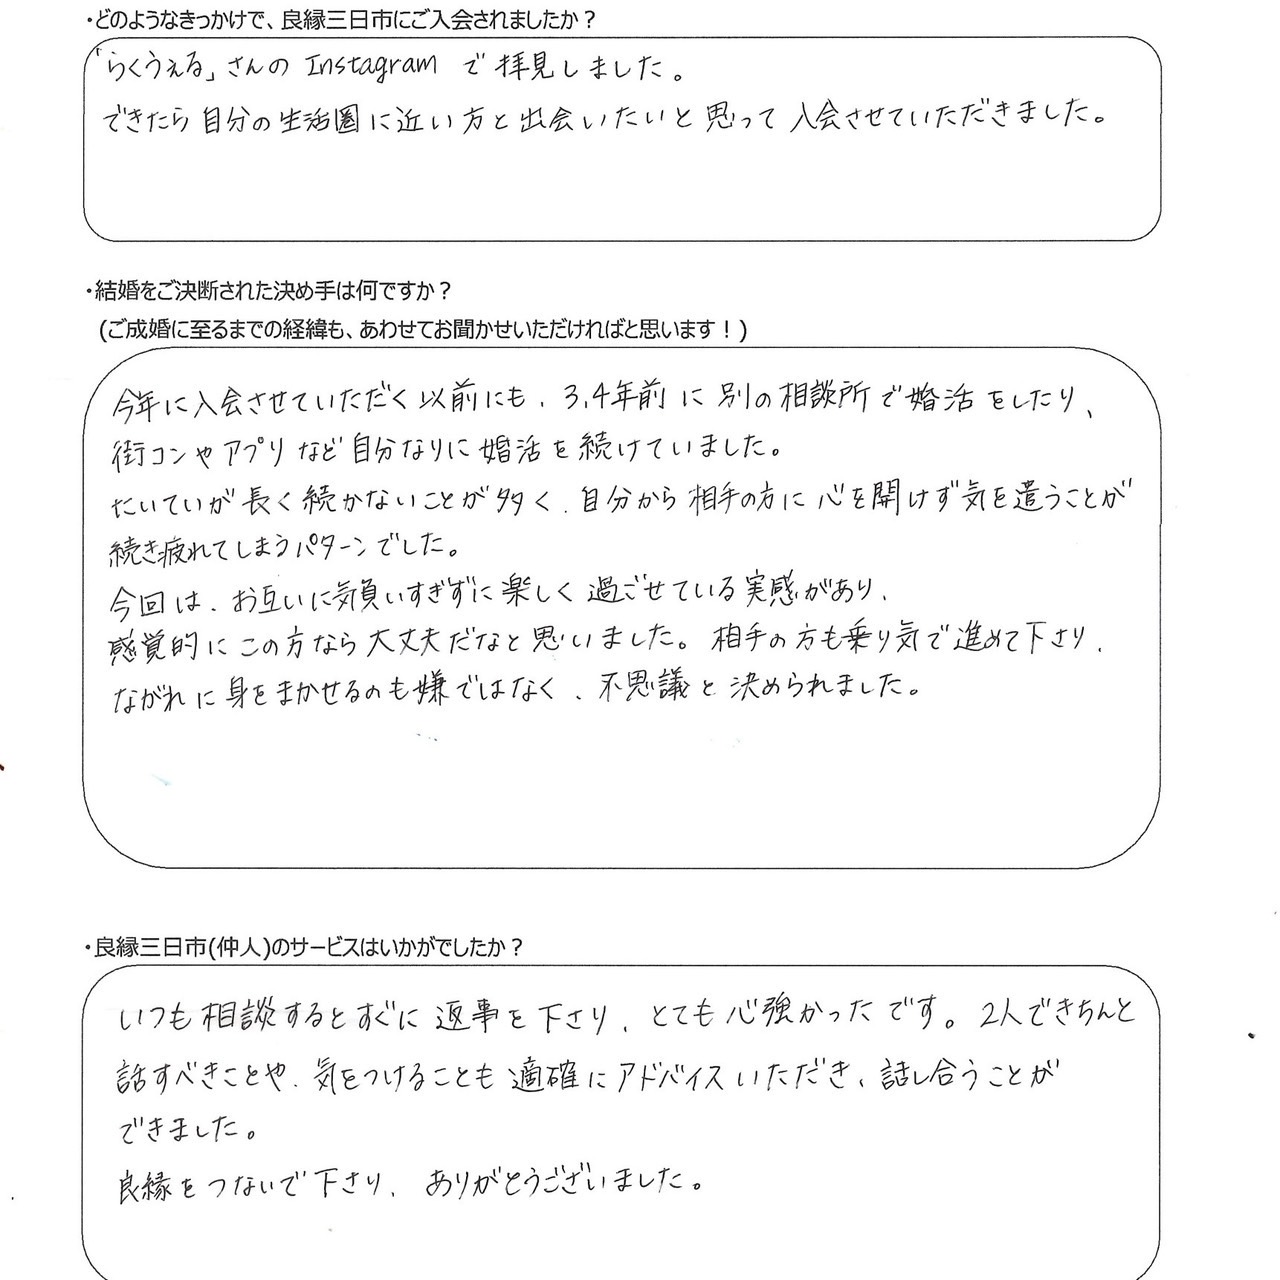 ・どのようなきっかけで、良縁三日市にご入会されましたか？
「らくうぇる」さんの Instagram で拝見しました。
できたら自分の生活圏に近い方と出会いたいと思って入会させていただきました。
・結婚をご決断された決め手は何ですか？
(ご成婚に至るまでの経緯も、あわせてお聞かせいただければと思います！)
今年に入会させていただく以前にも、3,4年前に別の相談所で婚活をしたり、
街コンやアプリなど自分なりに婚活を続けていました。
たいていが長く続かないことが多く、自分から相手の方に心を開けず気を遣うことが
続き疲れてしまうパターンでした。
今回は、お互いに気負いすぎずに楽しく過ごせている実感があり、
感覚的にこの方なら大丈夫だなと思いました。相手の方も乗り気で進めて下さり、
ながれに身をまかせるのも嫌ではなく、不思議と決められました。
・良縁三日市(仲人)のサービスはいかがでしたか？
いつも相談するとすぐに返事を下さり、とても心強かったです。2人できちんと
話すべきことや、気をつけることも適確にアドバイスいただき、話し合うことが
できました。
良縁をつないで下さり、ありがとうございました。